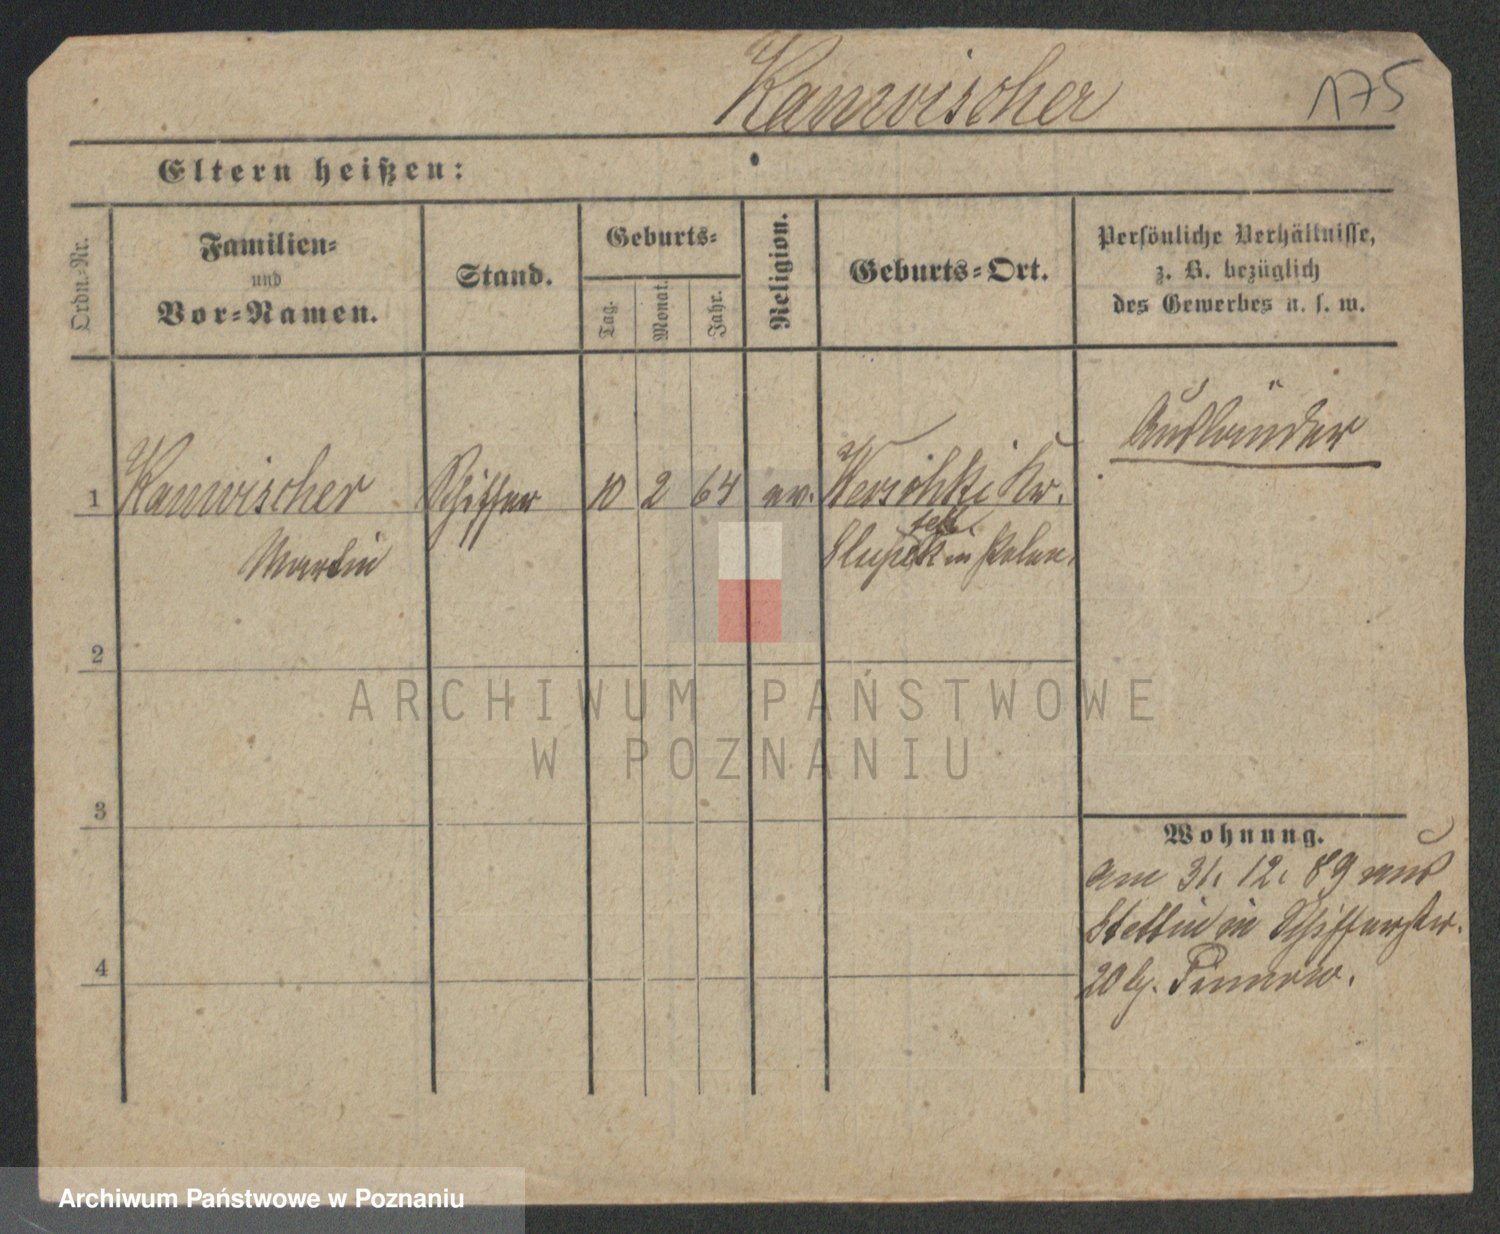 Kanwischer
175
Eltern heißen:
Ordn.-Nr.
Familien-
und
Vor-Namen.
Stand.
Geburts-
Tag.
Monat.
Jahr.
Religion.
Geburts-Ort.
Persönliche Verhältnisse,
z. B. bezüglich
des Gewerbes u. s. w.
Ausländer
1 Kanwischer Schiffer 10 2 64 ev. Kr.
Martin in Polen.
2
3
4
Wohnung.
am 31. 12. 89 aus
Stettin in Schifferstr.
20 b.
ARCHIWUM PAŃSTWOWE
W POZNANIU
Archiwum Państwowe w Poznaniu